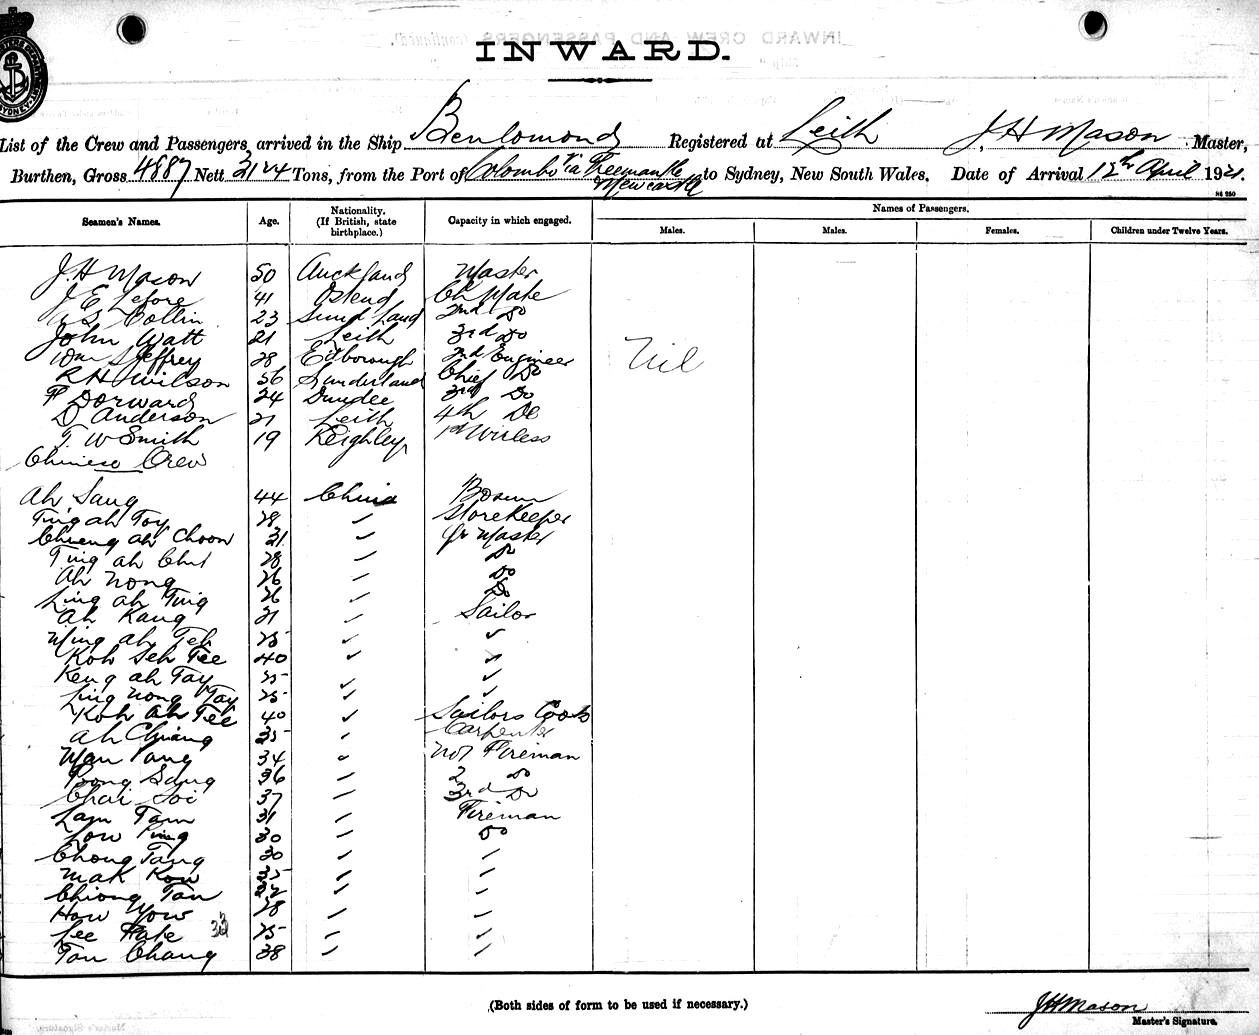 INWARD.
List of the Crew and Passengers arrived in the Ship Benlomond Registered at Leith J. H Mason Master,
Burthen, Gross 4887 Nett 3124 Tons, from the Port of Colombo via Freemantle Newcastle to Sydney, New South Wales. Date of Arrival 12th April 1921.
Seamen's Names. Age. Nationality. (If British, state birthplace.) Capacity in which engaged. Names of Passengers.
Males. Males. Females. Children under Twelve Years.
J. H Mason 50 Auckland Master
J E Lefore 41 Ostend Ch Mate
S Collin 23 Sunderland 2nd Do
John Watt 21 Leith 3rd Do
Wm S Jeffrey 28 Edborough 2nd Engineer
Nil
R H Wilson 56 Sunderland Chief Do
F Dorward 24 Dundee 3rd Do
D Anderson 21 Leith 4th Do
T. W Smith 19 Keighley Wirless
Chinese Crew
Ah Sang 44 China Bosun
Ting ah Toy 28 Storekeeper
Cheong ah Choon 31 Qr Master
Ting ah Chut 28 Do
Ah Nong 26 Do
Ling ah Ting 26 Do
Ah Kang 21 Sailor
Ming ah Teh 25
Koh Seh Tee 40
Keng ah Tay 25
Ling Nong Tay 25
Koh Ah Tee 40 Sailors Cook
Ah Chiang 35 Carpenter
Wan Pang 34 No 1 Fireman
Bong Sang 36 2 Do
Chai Soi 37 3rd Do
Lam Tam 31 Fireman
Low Ping 30 Do
Chong Tang 30
Mak Kow 35
Chiong Tan
How Yow 28
Lee Hake 33 25
Tan Chang 38
(Both sides of form to be used if necessary.)
J H Mason
Master's Signature.